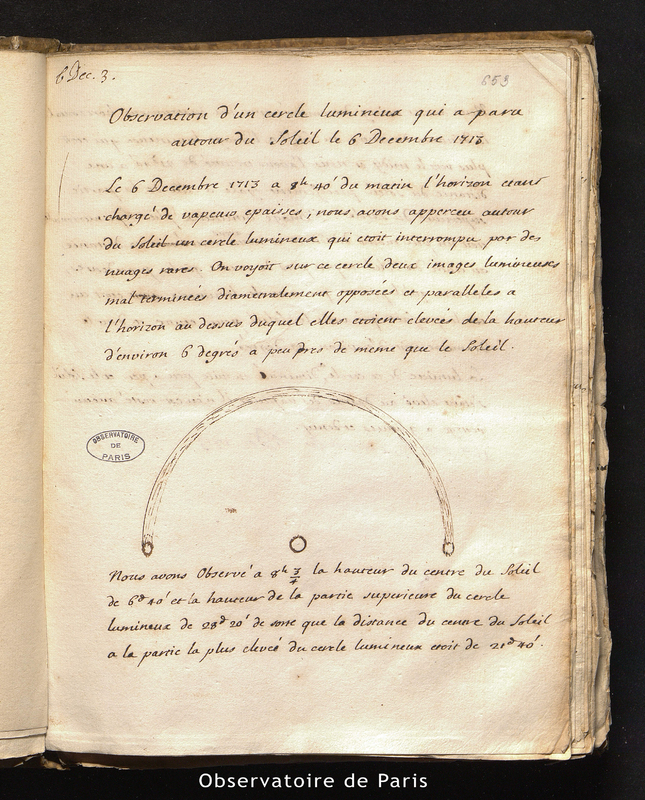 6 Dec. 3.
653
Observation d'un cercle lumineux qui a paru
autour du Soleil le 6 Decembre 1713
Le 6 Decembre 1713 a 8h 40' du matin l'horizon etant
chargé de vapeurs epaisses, nous avons apperceu autour
du Soleil un cercle lumineux qui etoit interrompu par des
nuages rares. On voyoit sur ce cercle deux images lumineuses
mal terminées diametralement opposées et paralleles a
l'horizon au dessus duquel elles etoient elevées de la hauteur
d'environ 6 degrés a peu pres de meme que le Soleil.
OBSERVATOIRE
DE
PARIS
Nous avons Observé a 8h 3/4 la hauteur du centre du Soleil
de 6d 40' et la hauteur de la partie superieure du cercle
lumineux de 28d 20' de sorte que la distance du centre du Soleil
a la partie la plus elevée du cercle lumineux etoit de 21d 40'.
Observatoire de Paris